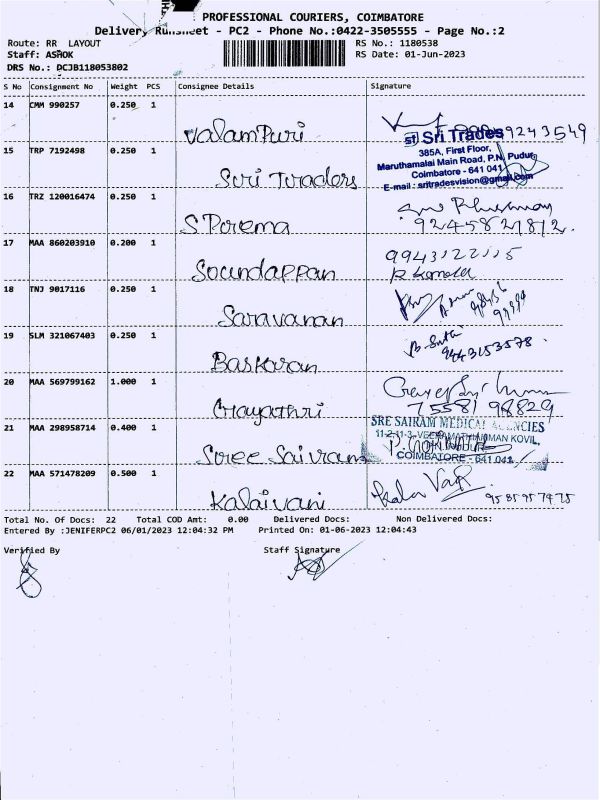 PROFESSIONAL COURIERS, COIMBATORE
Delivery RunSheet - PC2 - Phone No.:0422-3505555 - Page No.:2
Route: RR LAYOUT RS No.: 1180538
Staff: ASHOK RS Date: 01-Jun-2023
DRS No.: DCJB118053802
S No Consignment No Weight PCS Consignee Details Signature
14 CMM 990257 0.250 1
Valampuri 9243549
st Sri Trades
15 TRP 7192498 0.250 1 385A, First Floor,
Maruthamalai Main Road, P.N. Pudur
Coimbatore - 641 041
Suri Turaders E-mail : sritradesvision@gmail.com
16 TRZ 120016474 0.250 1
S Porema 9245821812.
17 MAA 860203910 0.200 1
Soundappan
18 TNJ 9017116 0.250 1
Saravanan
19 SLM 321067403 0.250 1
Baskaran 9443153578.
20 MAA 569799162 1.000 1
Gayathri 75581 98829
21 MAA 298958714 0.400 1 SRE SAIRAM MEDICAL AGENCIES
KOVIL,
Soree Sairam COIMBATORE - 641 041
22 MAA 571478209 0.500 1
Kalaivani Kala
Total No. Of Docs: 22 Total COD Amt: 0.00 Delivered Docs: Non Delivered Docs:
Entered By :JENIFERPC2 06/01/2023 12:04:32 PM Printed On: 01-06-2023 12:04:43
Verified By Staff Signature